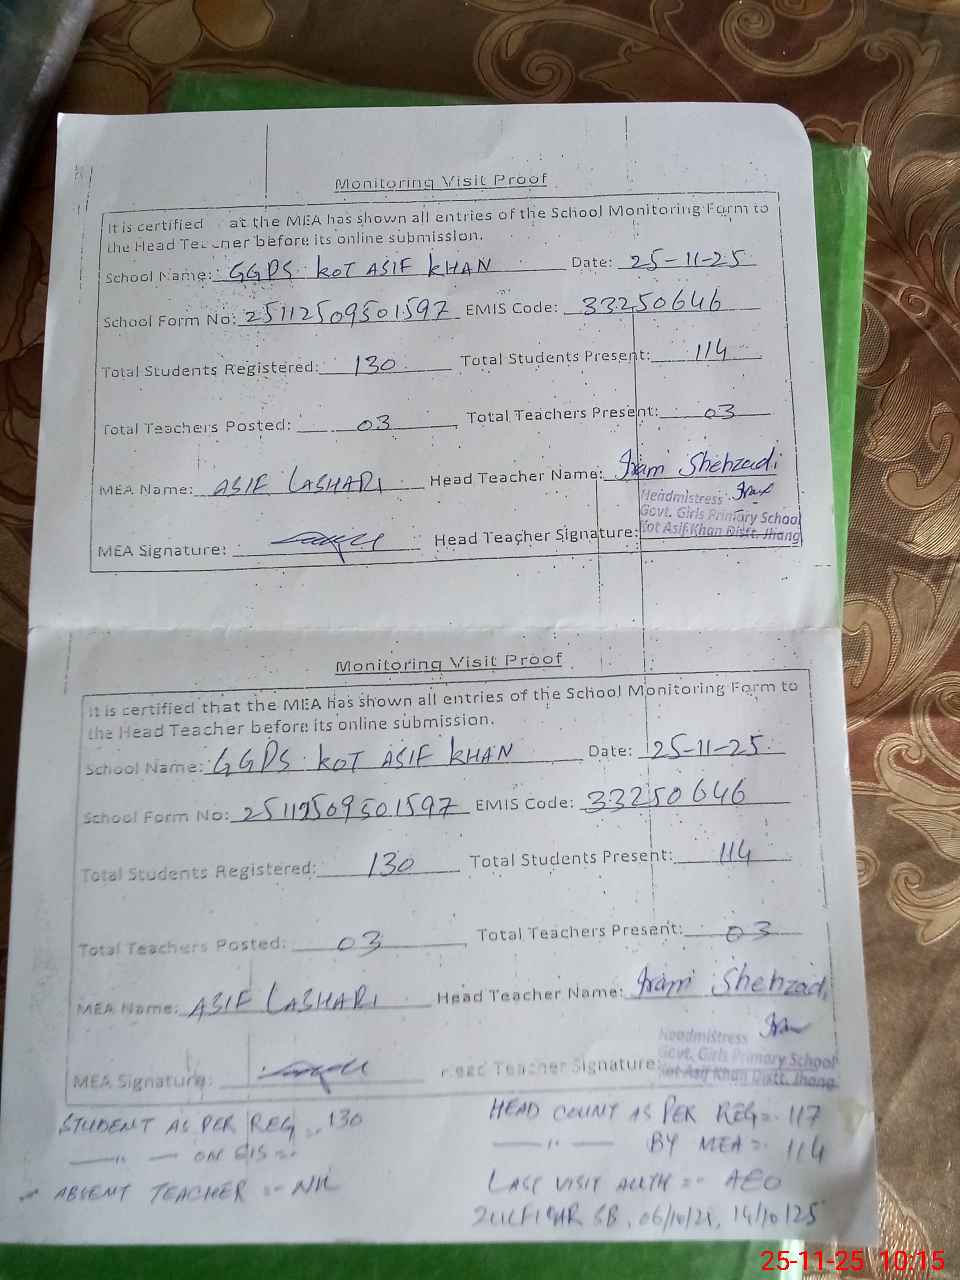 Monitoring Visit Proof
It is certified at the MEA has shown all entries of the School Monitoring Form to
the Head Teacher before its online submission.
School Name: GGPS KOT ASIF KHAN Date: 25-11-25
School Form No: 25112509501597 EMIS Code: 33250646
Total Students Registered: 130 Total Students Present: 114
Total Teachers Posted: 03 Total Teachers Present: 03
MEA Name: ASIF LASHARI Head Teacher Name: Iram Shehzadi
Headmistress
Govt. Girls Primary School
MEA Signature: Head Teacher Signature: Kot Asif Khan Distt. Jhang
Monitoring Visit Proof
It is certified that the MEA has shown all entries of the School Monitoring Form to
the Head Teacher before its online submission.
School Name: GGPS KOT ASIF KHAN Date: 25-11-25
School Form No: 25112509501597 EMIS Code: 33250646
Total Students Registered: 130 Total Students Present: 114
Total Teachers Posted: 03 Total Teachers Present: 03
MEA Name: ASIF LASHARI Head Teacher Name: Iram Shehzadi
Headmistress
Govt. Girls Primary School
MEA Signature: Head Teacher Signature: Kot Asif Khan Distt. Jhang
STUDENT AS PER REG = 130 HEAD COUNT AS PER REG = 117
—"— ON SIS = —"— BY MEA = 114
ABSENT TEACHER = NIL LAST VISIT AUTH = AEO
ZULFIQAR SB, 14/10/25
25-11-25 10:15